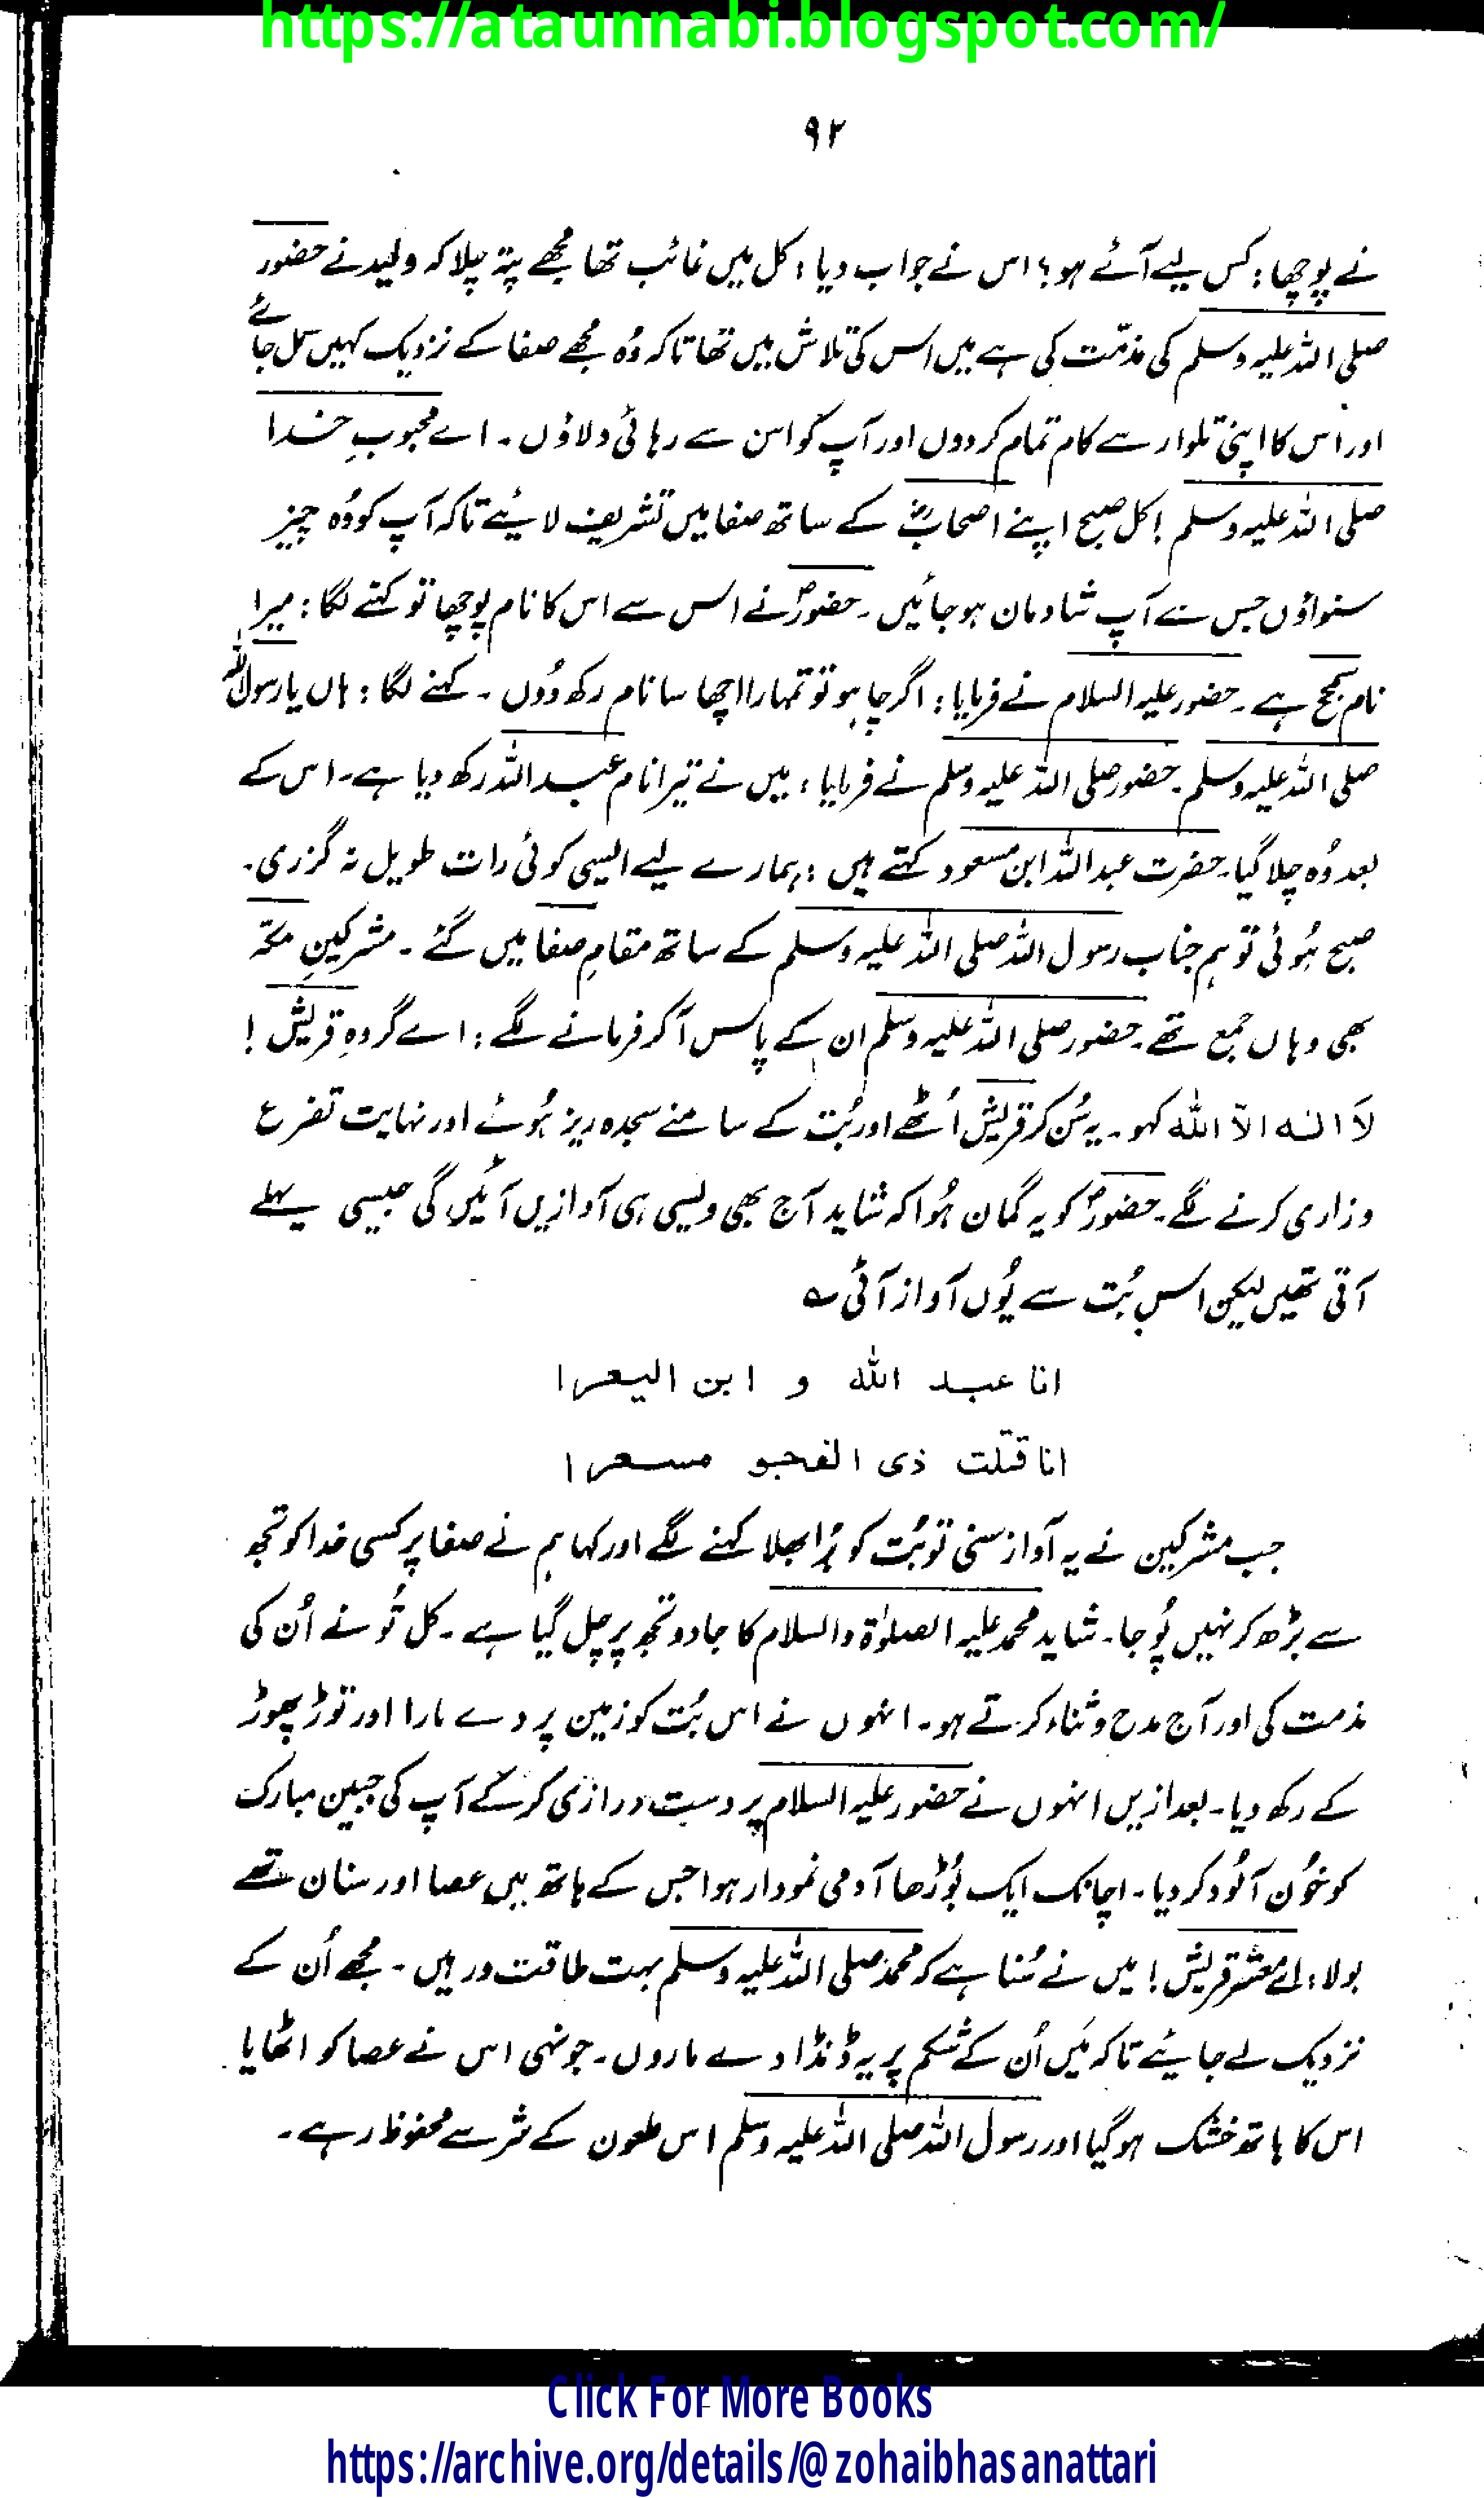 https://ataunnabi.blogspot.com/
۹۲
نے پوچھا : کس لیے آئے ہو ؟ اس نے جواب دیا : کل میں غائب تھا مجھے پتہ چلا کہ ولید نے حضور
صلی اللہ علیہ وسلم کی مذمّت کی ہے میں اس کی تلاش میں تھا تاکہ وُہ مجھے صفا کے نزدیک کہیں مل جائے
اور اس کا اپنی تلوار سے کام تمام کر دوں اور آپ کو اس سے رہائی دلاؤں ۔ اے محبوبِ خدا
صلی اللہ علیہ وسلم ! کل صبح اپنے اصحابؓ کے ساتھ صفا میں تشریف لائیے تاکہ آپ کو وُہ چیز
سنواؤں جس سے آپ شادمان ہو جائیں ۔ حضورؐ نے اس سے اس کا نام پوچھا تو کہنے لگا : میرا
نام سمحج ہے ۔ حضور علیہ السلام نے فرمایا : اگر چاہو تو تمہارا اچھا سا نام رکھ دُوں ۔ کہنے لگا : ہاں یا رسول اللہ
صلی اللہ علیہ وسلم ۔ حضور صلی اللہ علیہ وسلم نے فرمایا : میں نے تیرا نام عبداللہ رکھ دیا ہے ۔ اس کے
بعد وُہ چلا گیا ۔ حضرت عبداللہ ابن مسعود کہتے ہیں : ہمارے لیے ایسی کوئی رات طویل نہ گزری ۔
صبح ہُوئی تو ہم جناب رسول اللہ صلی اللہ علیہ وسلم کے ساتھ مقامِ صفا میں گئے ۔ مشرکینِ مکّہ
بھی وہاں جمع تھے ۔ حضور صلی اللہ علیہ وسلم ان کے پاس آ کر فرمانے لگے : اے گروہِ قریش !
لَا الٰہ الّا اللہ کہو ۔ یہ سُن کر قریش اُٹھے اور بُت کے سامنے سجدہ ریز ہُوئے اور نہایت تضرع
و زاری کرنے لگے ۔ حضورؐ کو یہ گمان ہُوا کہ شاید آج بھی ویسی ہی آوازیں آئیں گی جیسی پہلے
آتی تھیں لیکن اس بُت سے یُوں آواز آئی ؎
انا عبد اللہ و ابن الیعرا
انا قتلت ذی الفجو مسعرا
جب مشرکین نے یہ آواز سنی تو بُت کو بُرا بھلا کہنے لگے اور کہا ہم نے صفا پر کسی خدا کو تجھ
سے بڑھ کر نہیں پُوجا ۔ شاید محمد علیہ الصلوٰۃ والسلام کا جادو تجھ پر چل گیا ہے ۔ کل تُو نے اُن کی
مذمت کی اور آج مدح و ثناء کرتے ہو ۔ انہوں نے اس بُت کو زمین پر دے مارا اور توڑ پھوڑ
کے رکھ دیا ۔ بعد ازیں انہوں نے حضور علیہ السلام پر دست درازی کر کے آپ کی جبین مبارک
کو خُون آلُود کر دیا ۔ اچانک ایک بُوڑھا آدمی نمودار ہوا جس کے ہاتھ میں عصا اور سنان تھے
بولا : اے معشر قریش ! میں نے سُنا ہے کہ محمد صلی اللہ علیہ وسلم بہت طاقت ور ہیں ۔ مجھے اُن کے
نزدیک لے جائیے تاکہ مَیں اُن کے شکم پر یہ ڈنڈا دے ماروں ۔ جونہی اس نے عصا کو اٹھایا
اس کا ہاتھ خشک ہو گیا اور رسول اللہ صلی اللہ علیہ وسلم اس ملعون کے شر سے محفوظ رہے ۔
Click For More Books
https://archive.org/details/@zohaibhasanattari